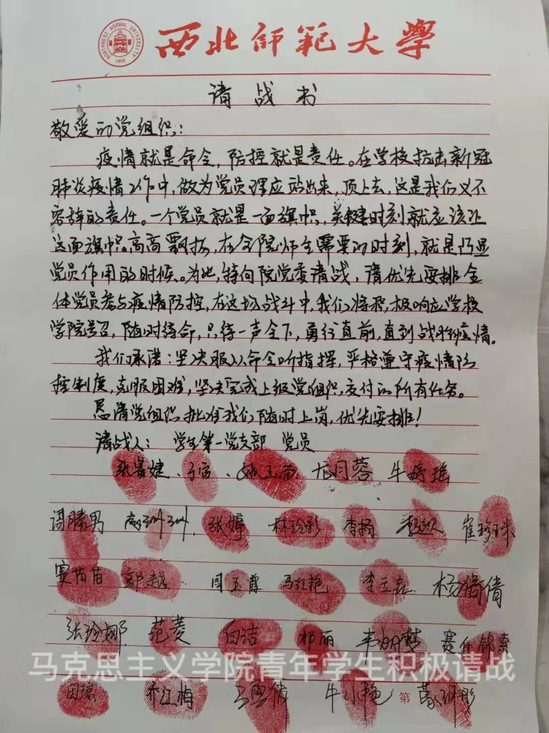 西北师范大学
请战书
敬爱的党组织:
疫情就是命令,防控就是责任。在学校抗击新冠
肺炎疫情工作中,做为党员理应站出来,顶上去,这是我们义不
容辞的责任。一个党员就是一面旗帜,关键时刻就应该让
这面旗帜高高飘扬,在全院师生需要的时刻,就是凸显
党员作用的时候。为此,特向院党委请战,请优先安排全
体党员参与疫情防控,在这场战斗中,我们将积极响应学校
学院号召,随时待命,只待一声令下,勇往直前,直到战胜疫情。
我们承诺:坚决服从命令听指挥,严格遵守疫情防
控制度,克服困难,坚决完成上级党组织交付的所有任务。
恳请党组织批准我们随时上岗,优先安排!
请战人: 学生第一党支部 党员
龙月蓉
张婷 李杨 崔珍珠
马红艳 杨倩倩
张玲娜 范菱 白洁 祁丽
马克思主义学院青年学生积极请战
乔红梅 牛小艳 第